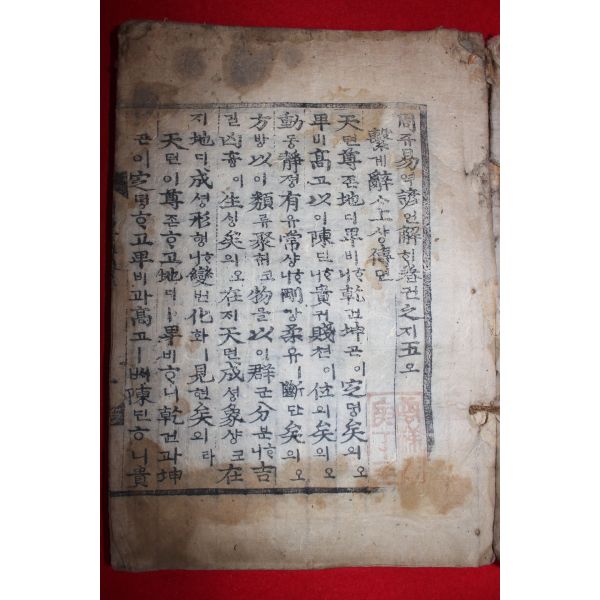 周쥬易역諺언解ᄒᆡ卷권之지五오
繫계辭ᄉᆞ上샹傳뎐
天텬尊존地디卑비ᄒᆞ니乾건坤곤이定뎡矣의오
卑비高고以이陳딘ᄒᆞ니貴귀賤쳔이位위矣의오
動동靜졍有유常샹ᄒᆞ니剛강柔유ㅣ斷단矣의오
方방以이類류聚취코物믈以이群군分분ᄒᆞ니吉
길凶흉이生ᄉᆡᆼ矣의오在ᄌᆡ天텬成셩象샹코在
ᄌᆡ地디成셩形형ᄒᆞ니變변化화ㅣ見현矣의라
天텬이尊존ᄒᆞ고地디ㅣ卑비ᄒᆞ니乾건과坤
곤이定뎡ᄒᆞ고卑비과高고ㅣ베陳딘ᄒᆞ니貴